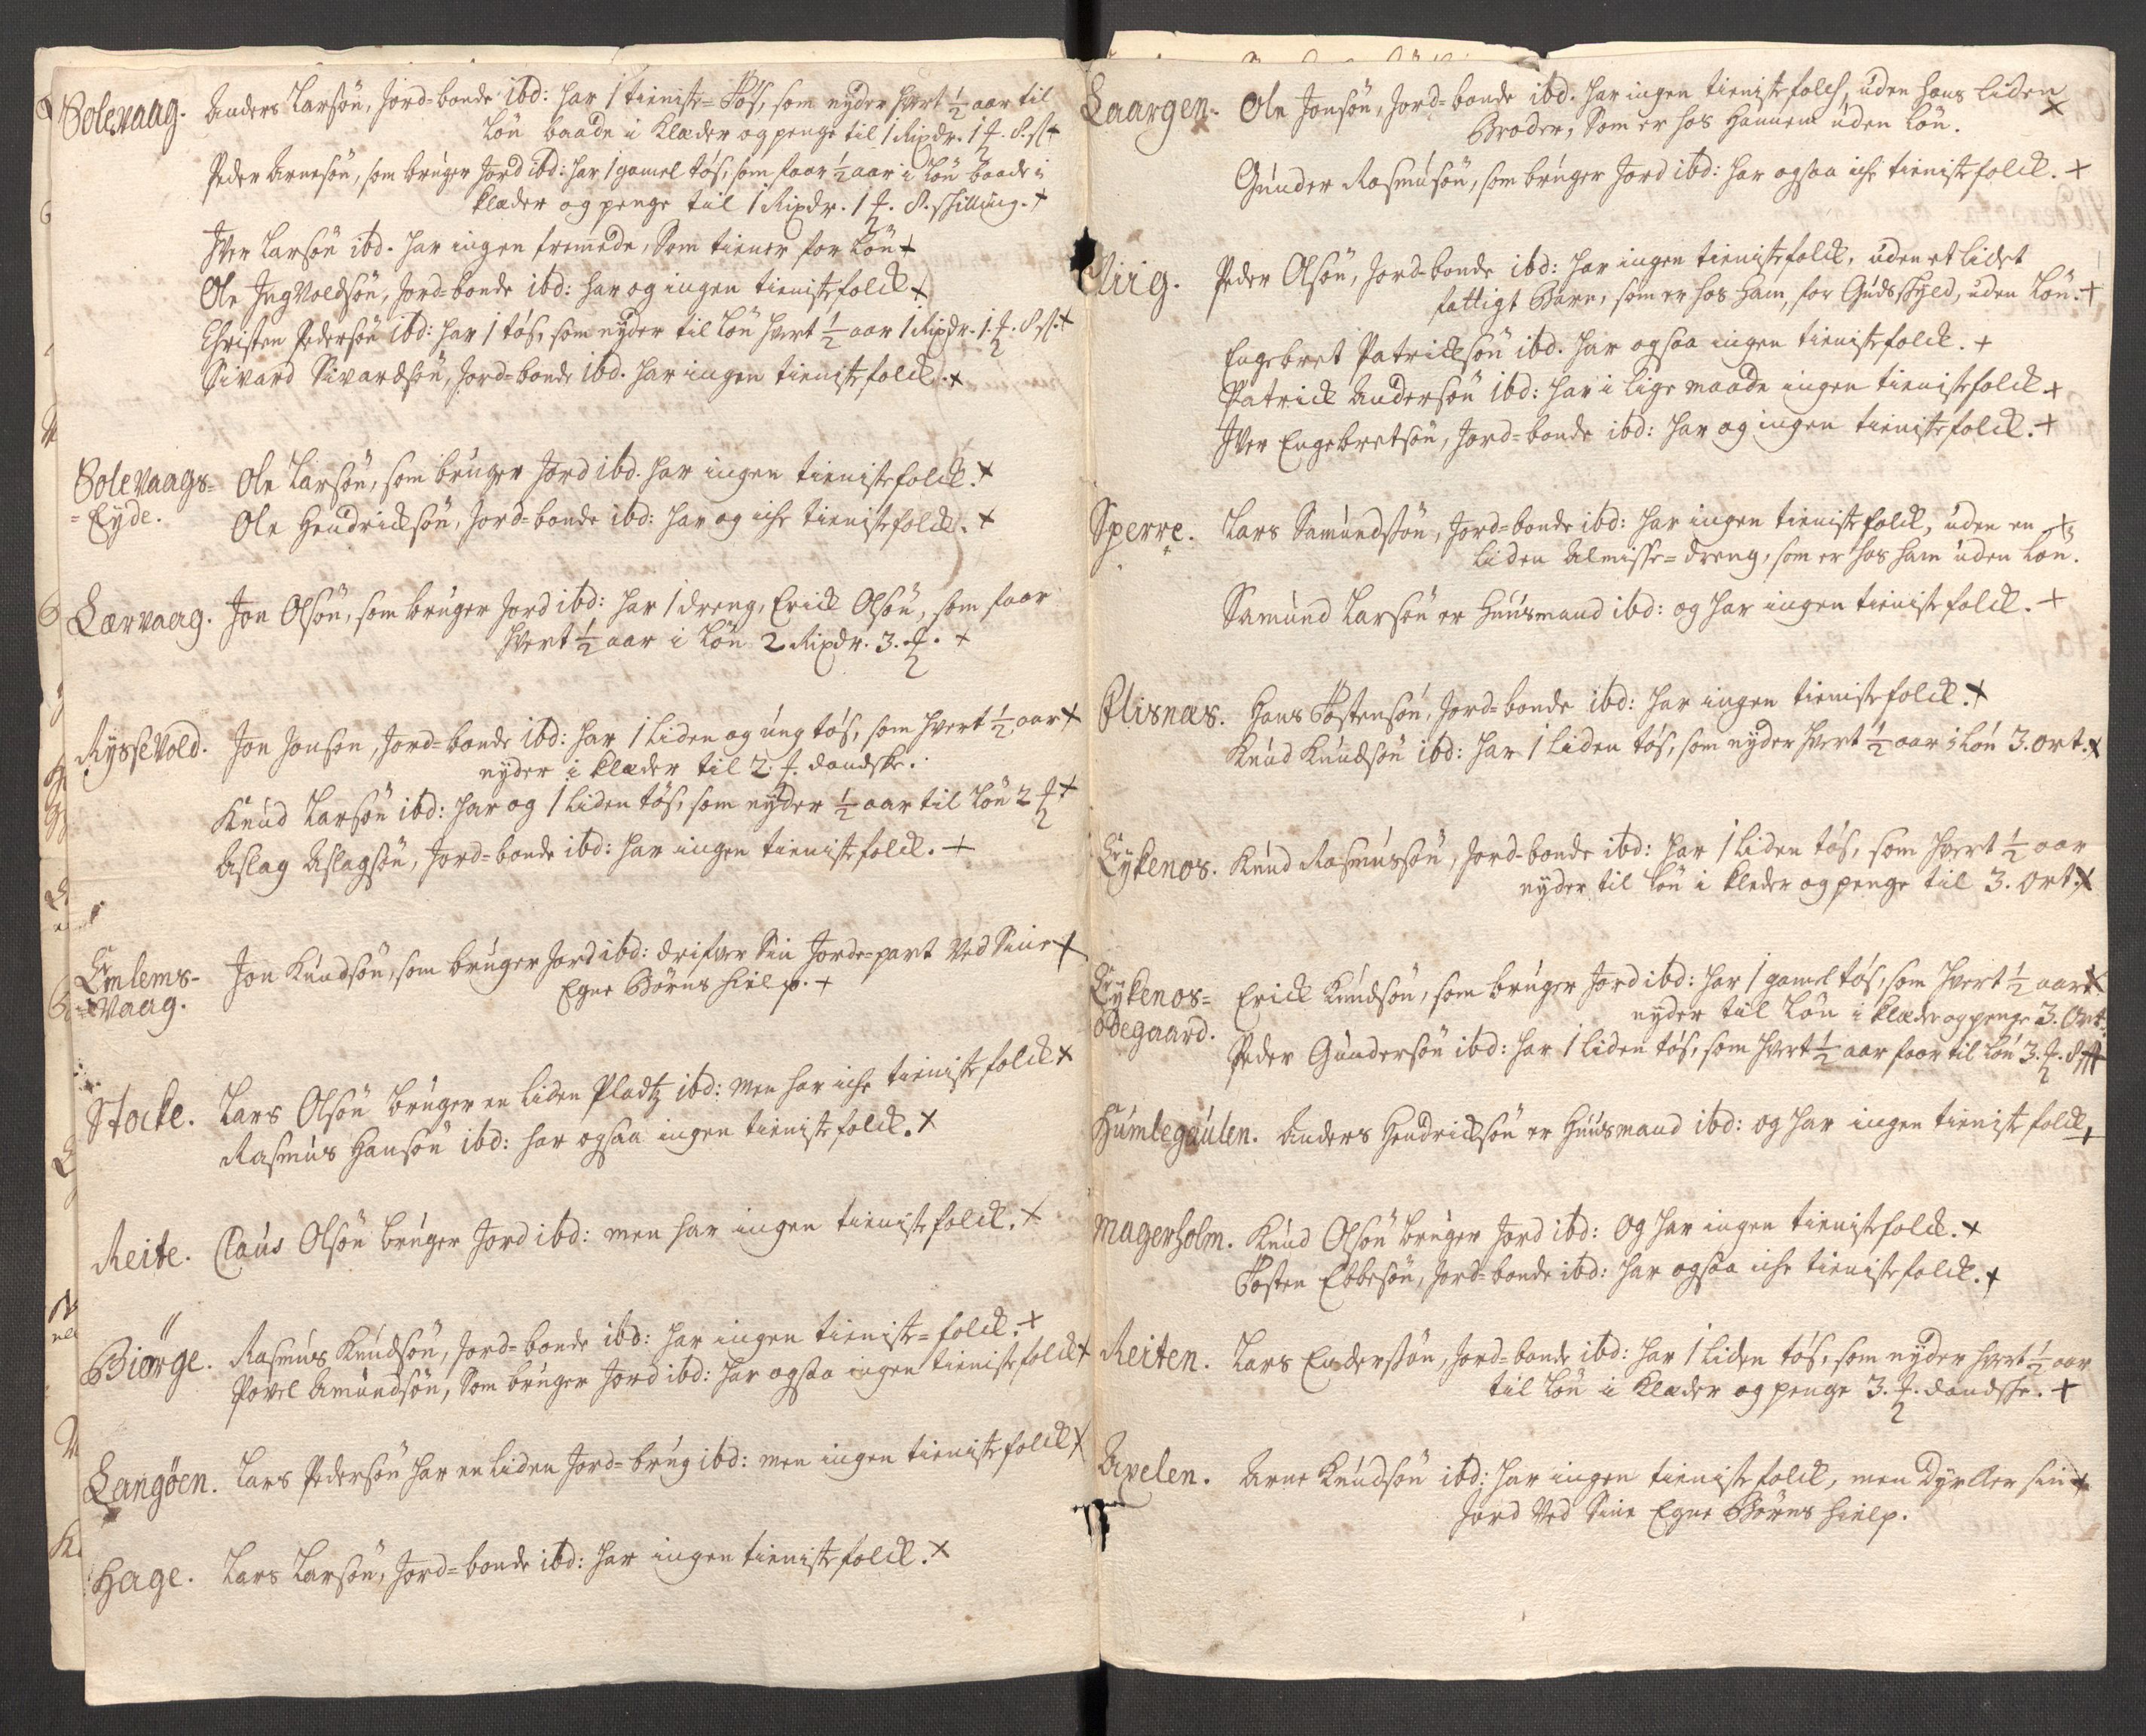 Solevaag. Anders Larsøn, Jord=bonde ibd: har 1 tieniste=Tøs, som nyder hvert ½ aar til
Løn baade i Klæder og penge til 1 Rixdr. 1 ℔. 8. sk +
Peder Arnesøn, som brúger Jord ibd: har 1 gamel tøs, som faar ½ aar i Løn baade i
klæder og penge til 1 Rixdr. 1 ℔. 8. skilling. +
Iver Larsøn ibd. har ingen fremede, Som tiener for Løn +
Ole IngVoldsøn, Jord=bonde ibd: har og ingen tienistefolck +
Christen Pedersøn ibd: har 1 tøs, som nyder til Løn hvert ½ aar 1 Rixdr. 1. ℔. 8. sk. +
Sivard Sivardsøn, Jord=bonde ibd. har ingen tienistefolck. +
Solevaags= Ole Larsøn, som brúger Jord ibd. har ingen tienistefolck. +
=Eyde. Ole Hendricksøn, Jord=bonde ibd: har og iche tienistefolck. +
Lærvaag. Jon Olsøn, som brúger Jord ibd: har 1 dreng, Erick Olsøn, som faar
hvert ½ aar i Løn 2 Rixdr. 3. ℔. +
RysseVold. Jon Jonsøn, Jord=bonde ibd: har 1 liden og úng tøs, som hvert ½ aar +
nyder i klæder til 2. ℔. dandske.
Knúd Larsøn ibd: har og 1 liden tøs, som nyder ½ aar til Løn 2 ℔ +
Aslag Aslagsøn, Jord=bonde ibd: har ingen tienistefolck. +
Emlems- Jon Knúdsøn, som brúger Jord ibd: drifver Sin Jorde=part Ved Sine +
=Vaag. Egne Børns hielp. +
Stocke. Lars Olsøn brúger en liden Pladtz ibd: men har iche tienistefolck +
Rasmús Hansøn ibd: har ogsaa ingen tienistefolck. +
Reite. Claús Olsøn brúger Jord ibd: men har ingen tienistefolck. +
Biørge. Rasmús Knúdsøn, Jord=bonde ibd: har ingen tieniste=folck. +
Povel Amúndsøn, Som brúger Jord ibd: har ogsaa ingen tienistefolck +
Langøen. Lars Pedersøn har en liden Jord=brúg ibd: men ingen tienistefolck +
Hage. Lars Larsøn, Jord=bonde ibd: har ingen tienistefolck. +
Laargen. Ole Jonsøn, Jord=bonde ibd. har ingen tienistefolch, úden hans liden +
Broder, Som er hos Hannem úden Løn.
Gúnder Rasmúsøn, som brúger Jord ibd: har ogsaa iche tienistefolck. +
Riig. Peder Olsøn, Jord-bonde ibd: har ingen tienistefolck, úden et lidet
fattigt Barn, som er hos Ham, for Gúds Skyld, úden Løn. +
Engebret Patricksøn ibd. har ogsaa ingen tienistefolck. +
Patrick Andersøn ibd: har i lige maade ingen tienistefolck +
Iver Engebretsøn, Jord=bonde ibd: har og ingen tienistefolck. +
Sperre. Lars Samúndsøn, Jord=bonde ibd: har ingen tienistefolck, úden en +
liden Almisse=dreng, som er hos ham úden Løn.
Samúnd Larsøn er Húúsmand ibd: og har ingen tienistefolck. +
Flisnæs. Hans Tostensøn, Jord=bonde ibd: har ingen tienistefolck. +
Knúd Knúdsøn ibd: har 1 liden tøs, som nyder hvert ½ aar i Løn 3. ort. +
Eykenos. Knúd Rasmússøn, Jord-bonde ibd: har 1 liden tøs, som hvert ½ aar
nyder til Løn i kleder og penge til 3. ort. +
Eykenos= Erick Knúdsøn, som brúger Jord ibd: har 1 gamel tøs, som hvert ½ aar +
ødegaard. nyder til Løn i klæder og penge 3. Ort.
Peder Gúndersøn ibd: har 1 liden tøs, som hvert ½ aar faar til Løn 3. ℔. 8 sk +
Húmlegaúlen. Anders Hendricksøn er Húúsmand ibd: og har ingen tienistefolck +
Magerholm. Knúd Olsøn brúger Jord ibd: Og har ingen tienistefolck. +
Tosten Ebbesøn, Jord=bonde ibd: har ogsaa iche tienistefolck. +
Reiten. Lars Enderssøn, Jord=bonde ibd: har 1 liden tøs, som nyder hvert ½ aar
til Løn i Klæder og penge 3. ℔. dandske. +
Axelen. Arne Knúdsøn ibd: har ingen tienistefolck, men dyrker sin +
Jord Ved Sine Egne Børns hielp.